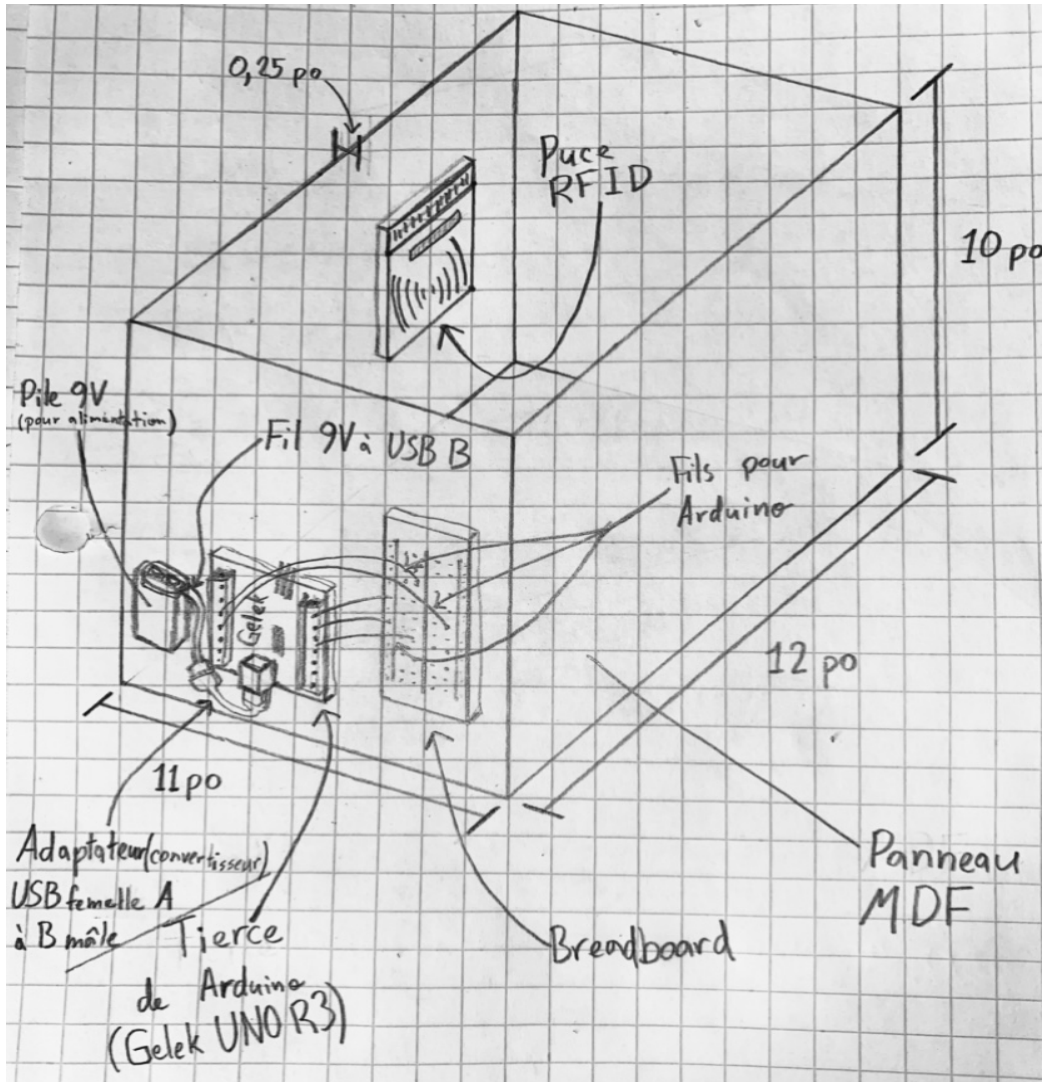 0,25 po
Puce
RFID
10 po
Pile 9V
(pour alimentation)
Fil 9V à USB B
Fils pour
Arduino
Gelek
12 po
11 po
Adaptateur(convertisseur)
USB femelle A
à B mâle
Panneau
MDF
Tierce
de Arduino
(Gelek UNO R3)
Breadboard